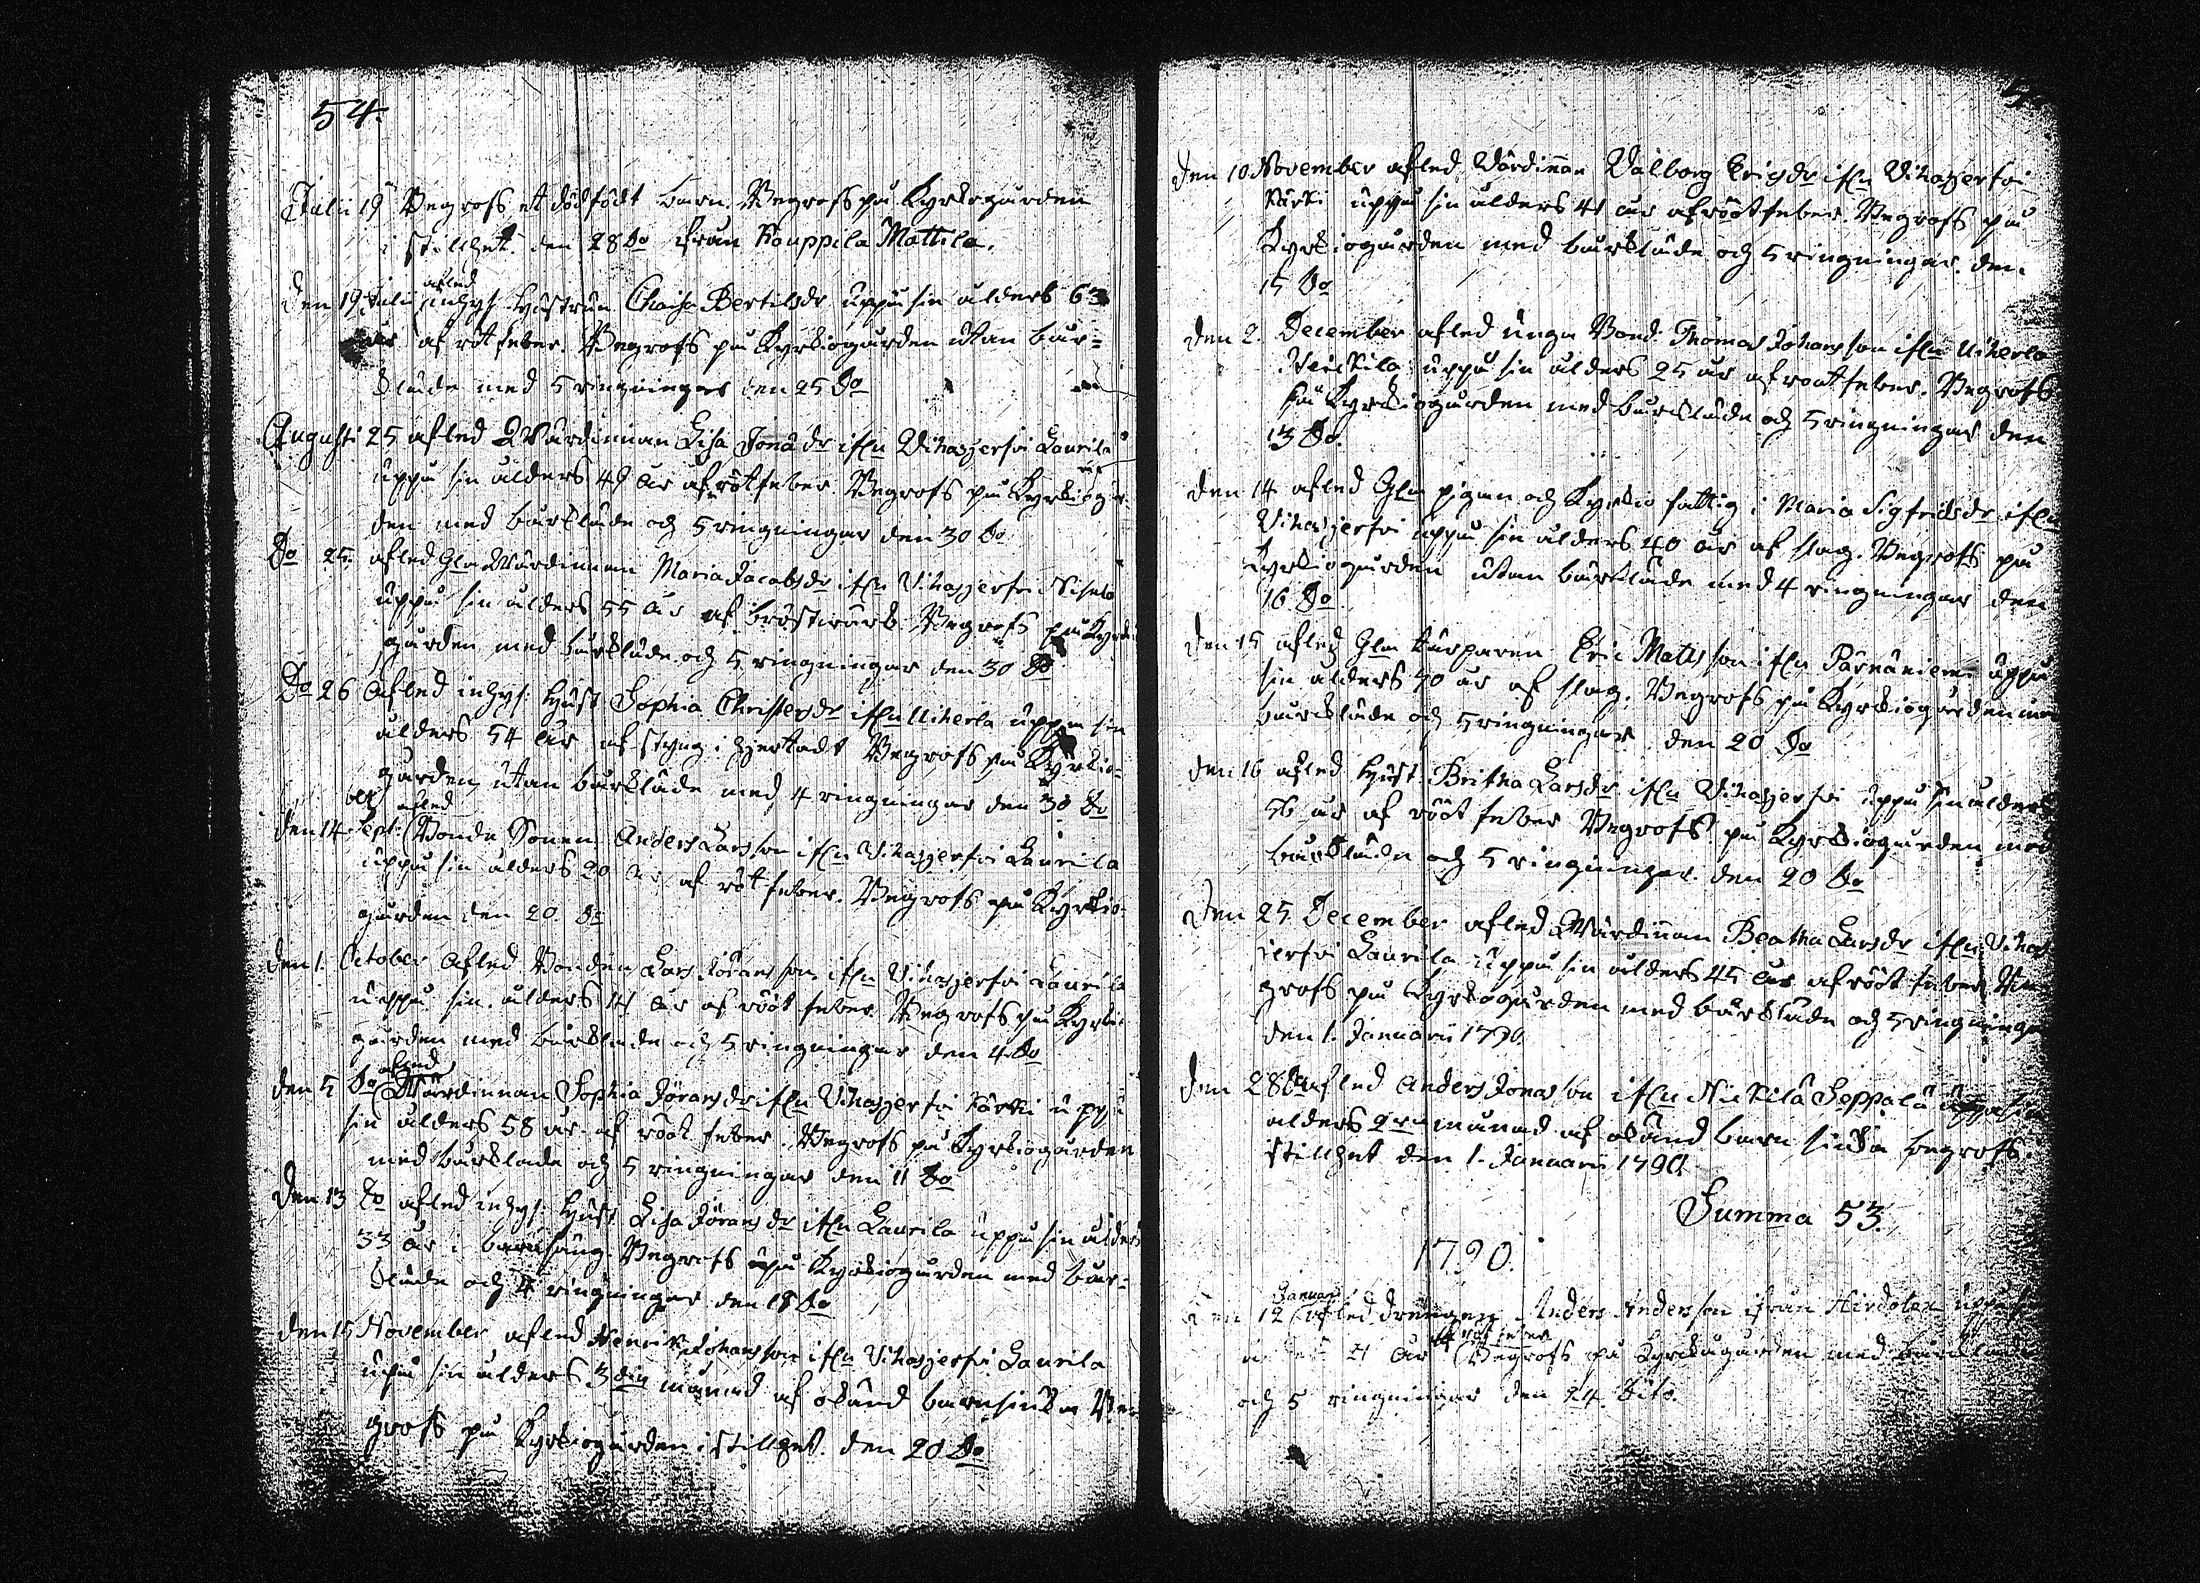 54.
Julii 19 Begrofs et dödfödt barn. Begrofs på Kyrkogården
i stillhet den 28 Do ifrån Kauppila Mattila.
afled
den 19 Julii inhys. hustrun Chaisa Bertilsdr uppå sin ålders 63
år af rötfeber. Begrofs på Kyrkiogården utan bår=
kläde med 5 ringningar den 25 Do
Augusti 25 afled Wärdinnan Lisa Jonædr ifrn Vihasjerfvi Laurila
uppå sin ålders 49 år af rötfeber. Begrofs på Kyrkiogår
den med bårkläde och 5 ringningar den 30 Do
Do 25. afled Gla Wärdinnan Maria Jacobsdr ifrn Vihasjerfvi
uppå sin ålders 55 år af bröstwärk. Begrofs på Kyrkio
gården med bårkläde och 5 ringningar den 30 Do
Do 26 Afled inhys: Hust Sophia Christersdr ifrn Uiherla uppå sin
ålders 54 år af styng i hjertadt Begrofs på Kyrkio-
gården utan bårkläde med 4 ringningar den 30 Do
ber afled
den 14 Sept: Bonde Sonen Anders Larsson ifrn Vihasjerfvi Laurila
uppå sin ålders 20 år af rötfeber. Begrofs på Kyrkio-
gården den 20 Do
den 1. October Afled Bonden Lars Jöransson ifrn Vihasjerfvi Laurila
uppå sin ålders år af rööt feber. Begrofs på Kyrkio
gården med bårkläde och 5 ringningar den 4 Do
afled
den 5 Do Wärdinnan Sophia Jöransdr ifrn Vihasjerfvi Kärki uppå
sin ålders 58 år af rööt feber. Begrofs på Kyrkiogården
med bårkläde och 5 ringningar den 11 Do
Den 13 Do afled inhys: Hust Lisa Jöransdr ifrn Laurila uppå sin ålders
33 år i barnsäng. Begrofs på Kyrkiogården med bår=
kläde och 4 ringningar den 18 Do
den 15 November afled Henrik Johansson ifrn Vihasjerfvi Laurila
uppå sin ålders 3die månad af okänd barnsiuka Be
grofs på Kyrkiogården i stillhet. den 20 Do
den 10 November afled Wärdinnan Valborg Ericsdr ifrn Vihasjerfvi
Kärki uppå sin ålders 41 år af rööt feber. Begrofs på
Kyrkiogården med bårkläde och 5 ringningar. den
15 Do
den 2. December afled unga Bond. Thomas Johansson ifrn Uiherla
uppå sin ålders 25 år af rootfeber. Begrofs
på Kyrkiogården med bårkläde och 5 ringningar den
13 Do.
den 14 afled Gla pigan och Kyrkio fattig Maria Sigfridsdr ifrn
Vihasjerfvi uppå sin ålders 40 år af slag. Begrofs på
Kyrkiogården utan bårkläde med 4 ringningar den
16 Do
den 15 afled Gla torparen Eric Matts son ifrn Pärnäniemi uppå
sin ålders 70 år af slag. Begrofs på Kyrkiogården med
bårkläde och 5 ringningar den 20 Do
den 16 afled Hust. Britha Larsdr ifrn Vihasjerfvi uppå sin ålders
56 år af rööt feber Begrofs på Kyrkiogården med
bårkläde och 5 ringningar. den 20 Do
Den 25 December afled Wärdinnan Beatha Larsdr ifrn Vihas
jerfvi Laurila uppå sin ålders 45 år af rööt feber Be
grofs på Kyrkogården med bårkläde och 5 ringningar
den 1. Januarii 1790.
den 28 Do afled Anders Jonasson ifrn Nickilä Seppälä uppå sin
ålders 2dra månad af okänd barn siuka begrofs
stillhet den 1. Januarii 1790
Summa 53.
1790.
Januarii
den 12 afled drängen Anders Andersson ifrån Hirdolan uppå
21 år af röt feber Begrofs på Kyrckogården med bårkläde
och 5 ringningar den 24. Dito.